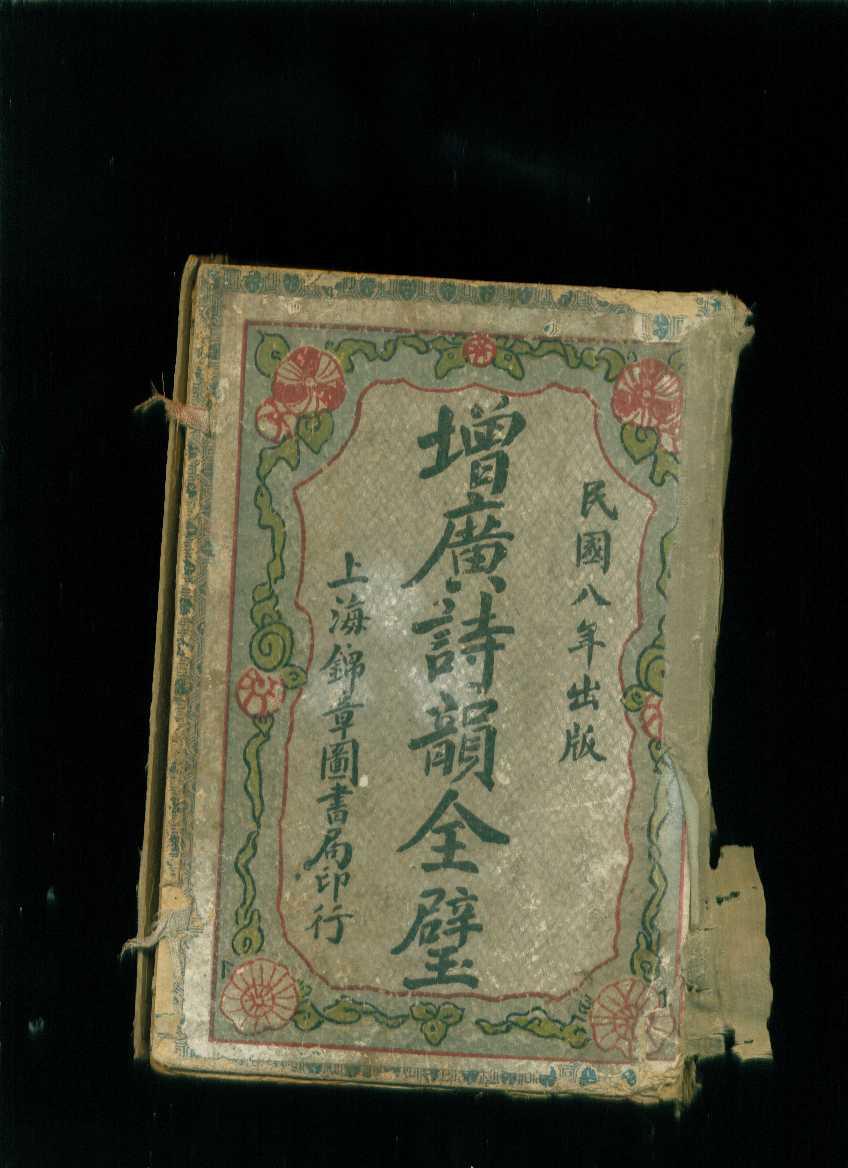 民國八年出版
增廣詩韻全璧
上海錦章圖書局印行